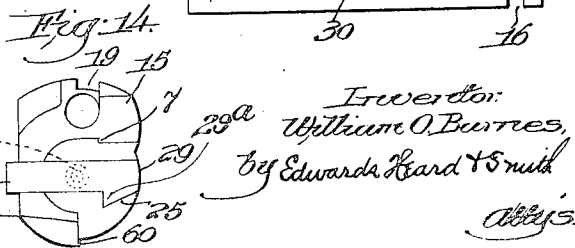 Fig. 14.
30
16
19
15
7
29a
29
25
60
Inventor:
William O. Burnes,
by Edwards Heard & Smith
Attys.